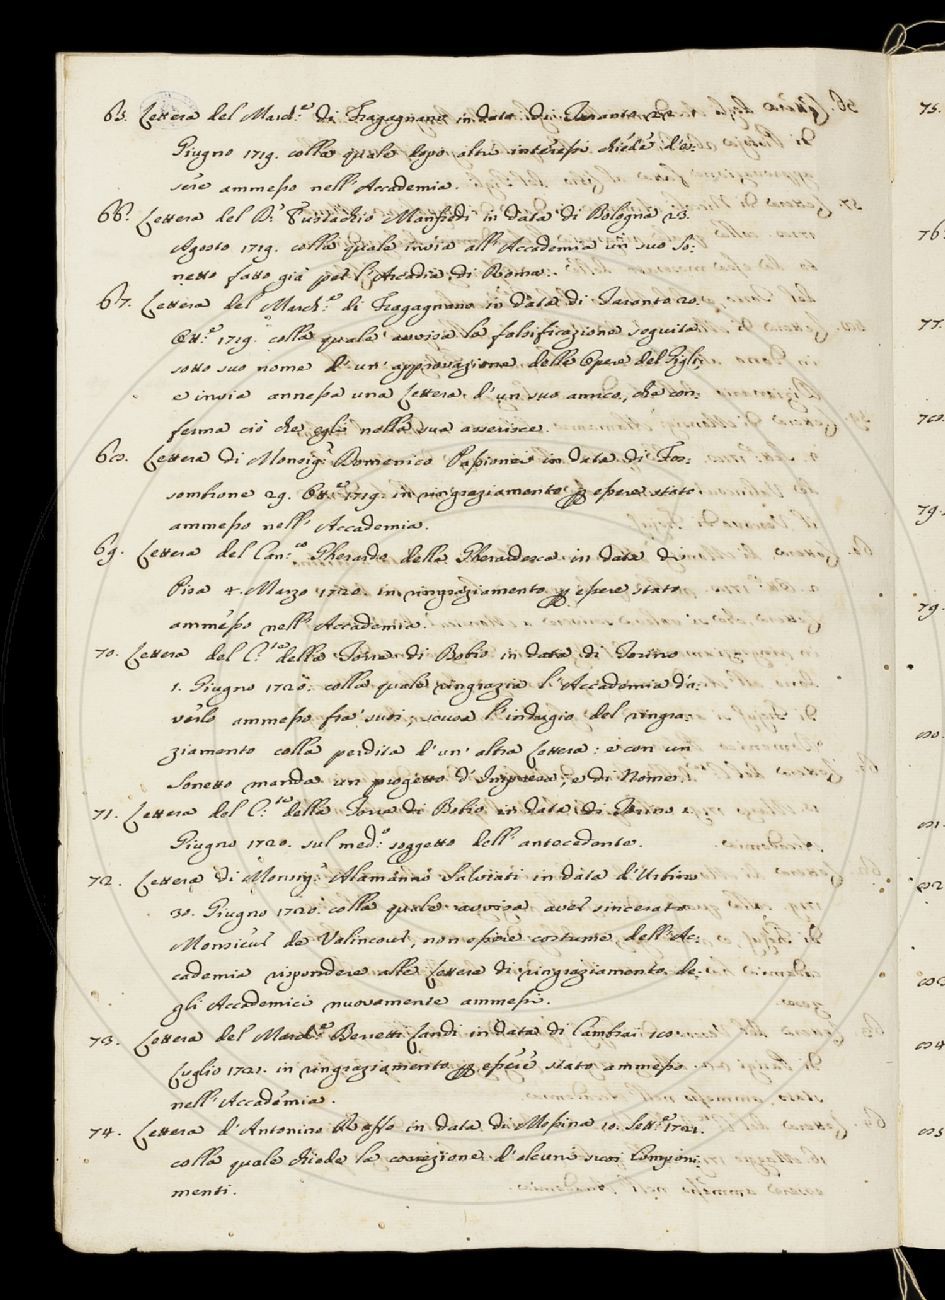 65. Lettera del March.e di Fragagnano in data di Taranto
Giugno 1719. colla quale dopo altri interessi chiede d'es:
sere ammesso nell'Accademia.
66. Lettera del D.r Eustachio Manfredi in data di Bologna 23.
Agosto 1719. colla quale invia all'Accademia un suo So:
netto fatto già per l'Arcadia di Roma.
67. Lettera del March.e di Fragagnano in data di Taranto 20.
Ott.e 1719. colla quale avvisa la falsificazione seguita
sotto suo nome d'un'approvazione delle Opere del Gigli;
e invia annessa una Lettera d'un suo amico, che con:
ferma ciò che egli nella sua asserisce.
68. Lettera di Monsig.r Domenico Passionei in data di Fos:
sombrone 29. Ott.e 1719. in ringraziamento p essere stato
ammesso nell'Accademia.
69. Lettera del Can.co Gherardo della Gherardesca in data di
Pisa 4. Marzo 1720. in ringraziamento p essere stato
ammesso nell'Accademia.
70. Lettera del C.te della Torre di Bobio in data di Torino
1. Giugno 1720. colla quale ringrazia l'Accademia d'a:
verlo ammesso fra' suoi; scusa l'indugio del ringra:
ziamento colla perdita d'un'altra Lettera: e con un
Sonetto manda un progetto d'Impresa, e di Nome.
71. Lettera del C.te della Torre di Bobio in data di Torino
Giugno 1720. sul med.o soggetto dell'antecedente.
72. Lettera di Monsig.r Alamanno Salviati in data d'Urbino
30. Giugno 1720. colla quale avvisa aver sincerato
Monsieur de Valincour, non essere costume dell'Ac:
cademia rispondere alle Lettere di ringraziamento de:
gli Accademici nuovamente ammessi.
73. Lettera del March.e Beretti Landi in data di Cambrai
Luglio 1721. in ringraziamento p essere stato ammesso
nell'Accademia.
74. Lettera d'Antonino in data di Messina 10. Sett.e 1721.
colla quale chiede la correzione d'alcuni suoi Componi:
menti.
75.
76.
77.
78.
79.
79.
80.
81.
82
83
84
85